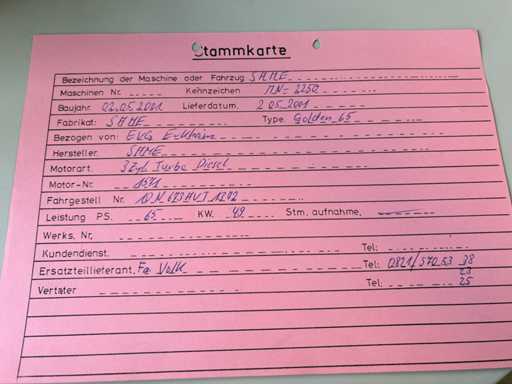 Stammkarte
Bezeichnung der Maschine oder Fahrzug SAME
Maschinen Nr. Kehnzeichen MN-2250
Baujahr. 02.05.2001 Lieferdatum, 2.05.2001
Fabrikat: SAME Type: Golden 65
Bezogen von: EVG
Hersteller. SAME
Motorart. 3 Zyl. Turbo Diesel
Motor-Nr. 1571
Fahrgestell Nr.
Leistung PS. 65 KW. 48 Stm. aufnahme,
Werks, Nr,
Kundendienst. Tel:
Ersatzteillieferant, Fa Volk Tel: 0821/570 53 38
23
Vertäter Tel: 25